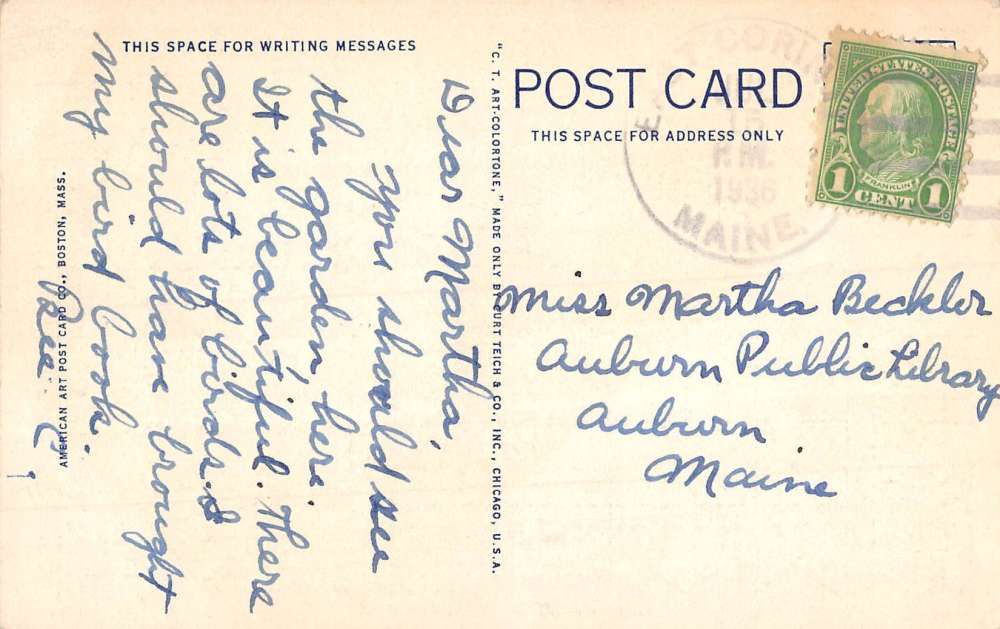 THIS SPACE FOR WRITING MESSAGES
Dear Martha,
You should see
the garden here.
It is beautiful. There
are lots of birds. I
should have brought
my bird book.
AMERICAN ART POST CARD CO., BOSTON, MASS.
"C. T. ART-COLORTONE," MADE ONLY BY CURT TEICH & CO., INC., CHICAGO, U.S.A.
POST CARD
THIS SPACE FOR ADDRESS ONLY
15
P.M.
1936
MAINE.
UNITED STATES POSTAGE
FRANKLIN
1 CENT 1
Miss Martha Beckler
Auburn Public Library
Auburn
Maine